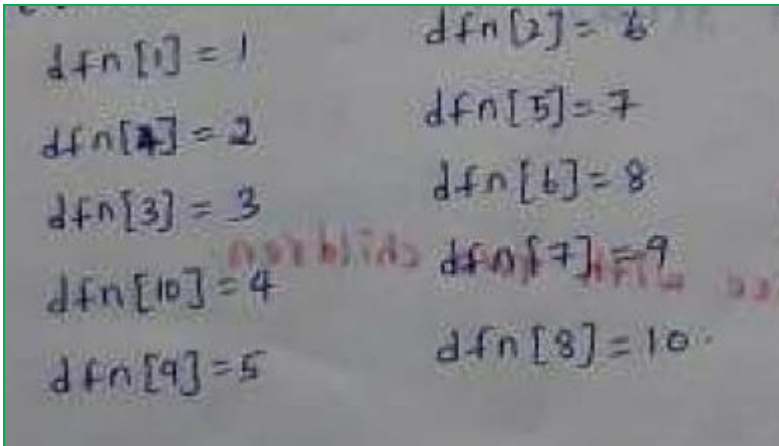 dfn[1] = 1
dfn[4] = 2
dfn[3] = 3
dfn[10] = 4
dfn[9] = 5
dfn[2] = 6
dfn[5] = 7
dfn[6] = 8
dfn[7] = 9
dfn[8] = 10